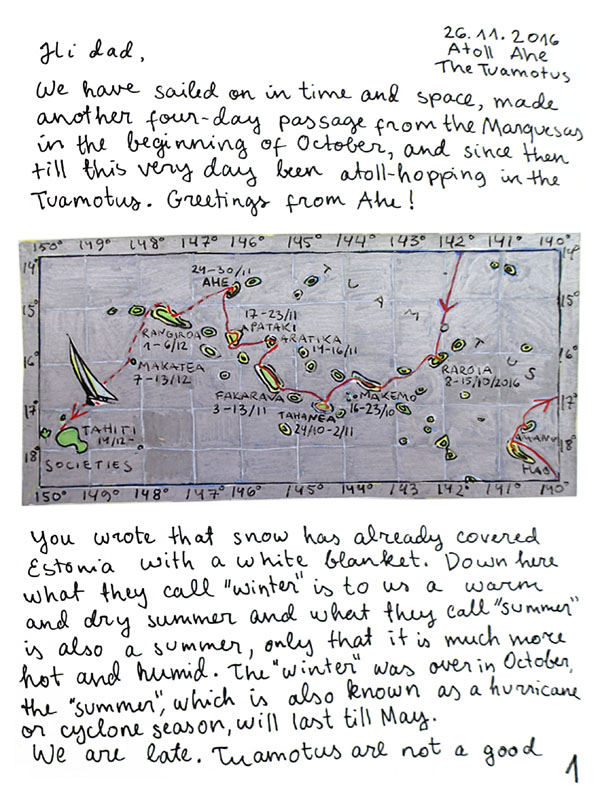 26.11.2016
Atoll Ahe
The Tuamotus
Hi dad,
We have sailed on in time and space, made
another four-day passage from the Marquesas
in the beginning of October, and since then
till this very day been atoll-hopping in the
Tuamotus. Greetings from Ahe!
150° 149° 148° 147° 146° 145° 144° 143° 142° 141° 140°
14° 14°
24-30/11
AHE
T U A M O T U S
15° 15°
17-23/11
APATAKI
RANGIROA
1-6/12
ARATIKA
14-16/11
16° 16°
MAKATEA
7-13/12
RAROIA
8-15/10/2016
FAKARAVA
3-13/11
MAKEMO
16-23/10
17° 17°
TAHANEA
24/10-2/11
TAHITI
14/12-
AMANU
18° 18°
SOCIETIES
HAO
150° 149° 148° 147° 146° 145° 144° 143 142° 141° 140°
You wrote that snow has already covered
Estonia with a white blanket. Down here
what they call "winter" is to us a warm
and dry summer and what they call "summer"
is also a summer, only that it is much more
hot and humid. The "winter" was over in October,
the "summer", which is also known as a hurricane
or cyclone season, will last till May.
We are late. Tuamotus are not a good
1